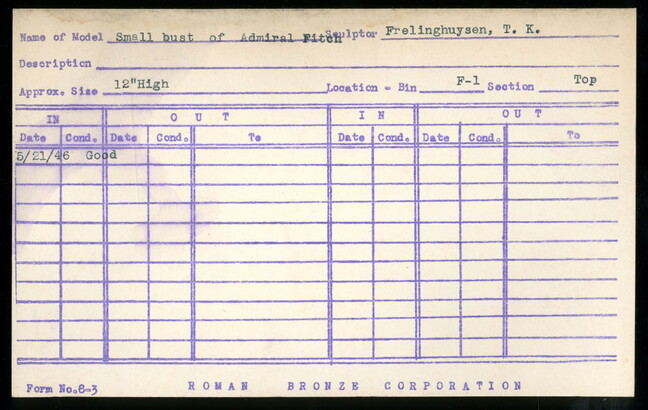 Name of Model Small bust of Admiral Fitch Sculptor Frelinghuysen, T. K.
Description
Approx. Size 12"High Location - Bin F-1 Section Top
IN OUT IN OUT
Date Cond. Date Cond. To Date Cond. Date Cond. To
5/21/46 Good
Form No.8-3 ROMAN BRONZE CORPORATION